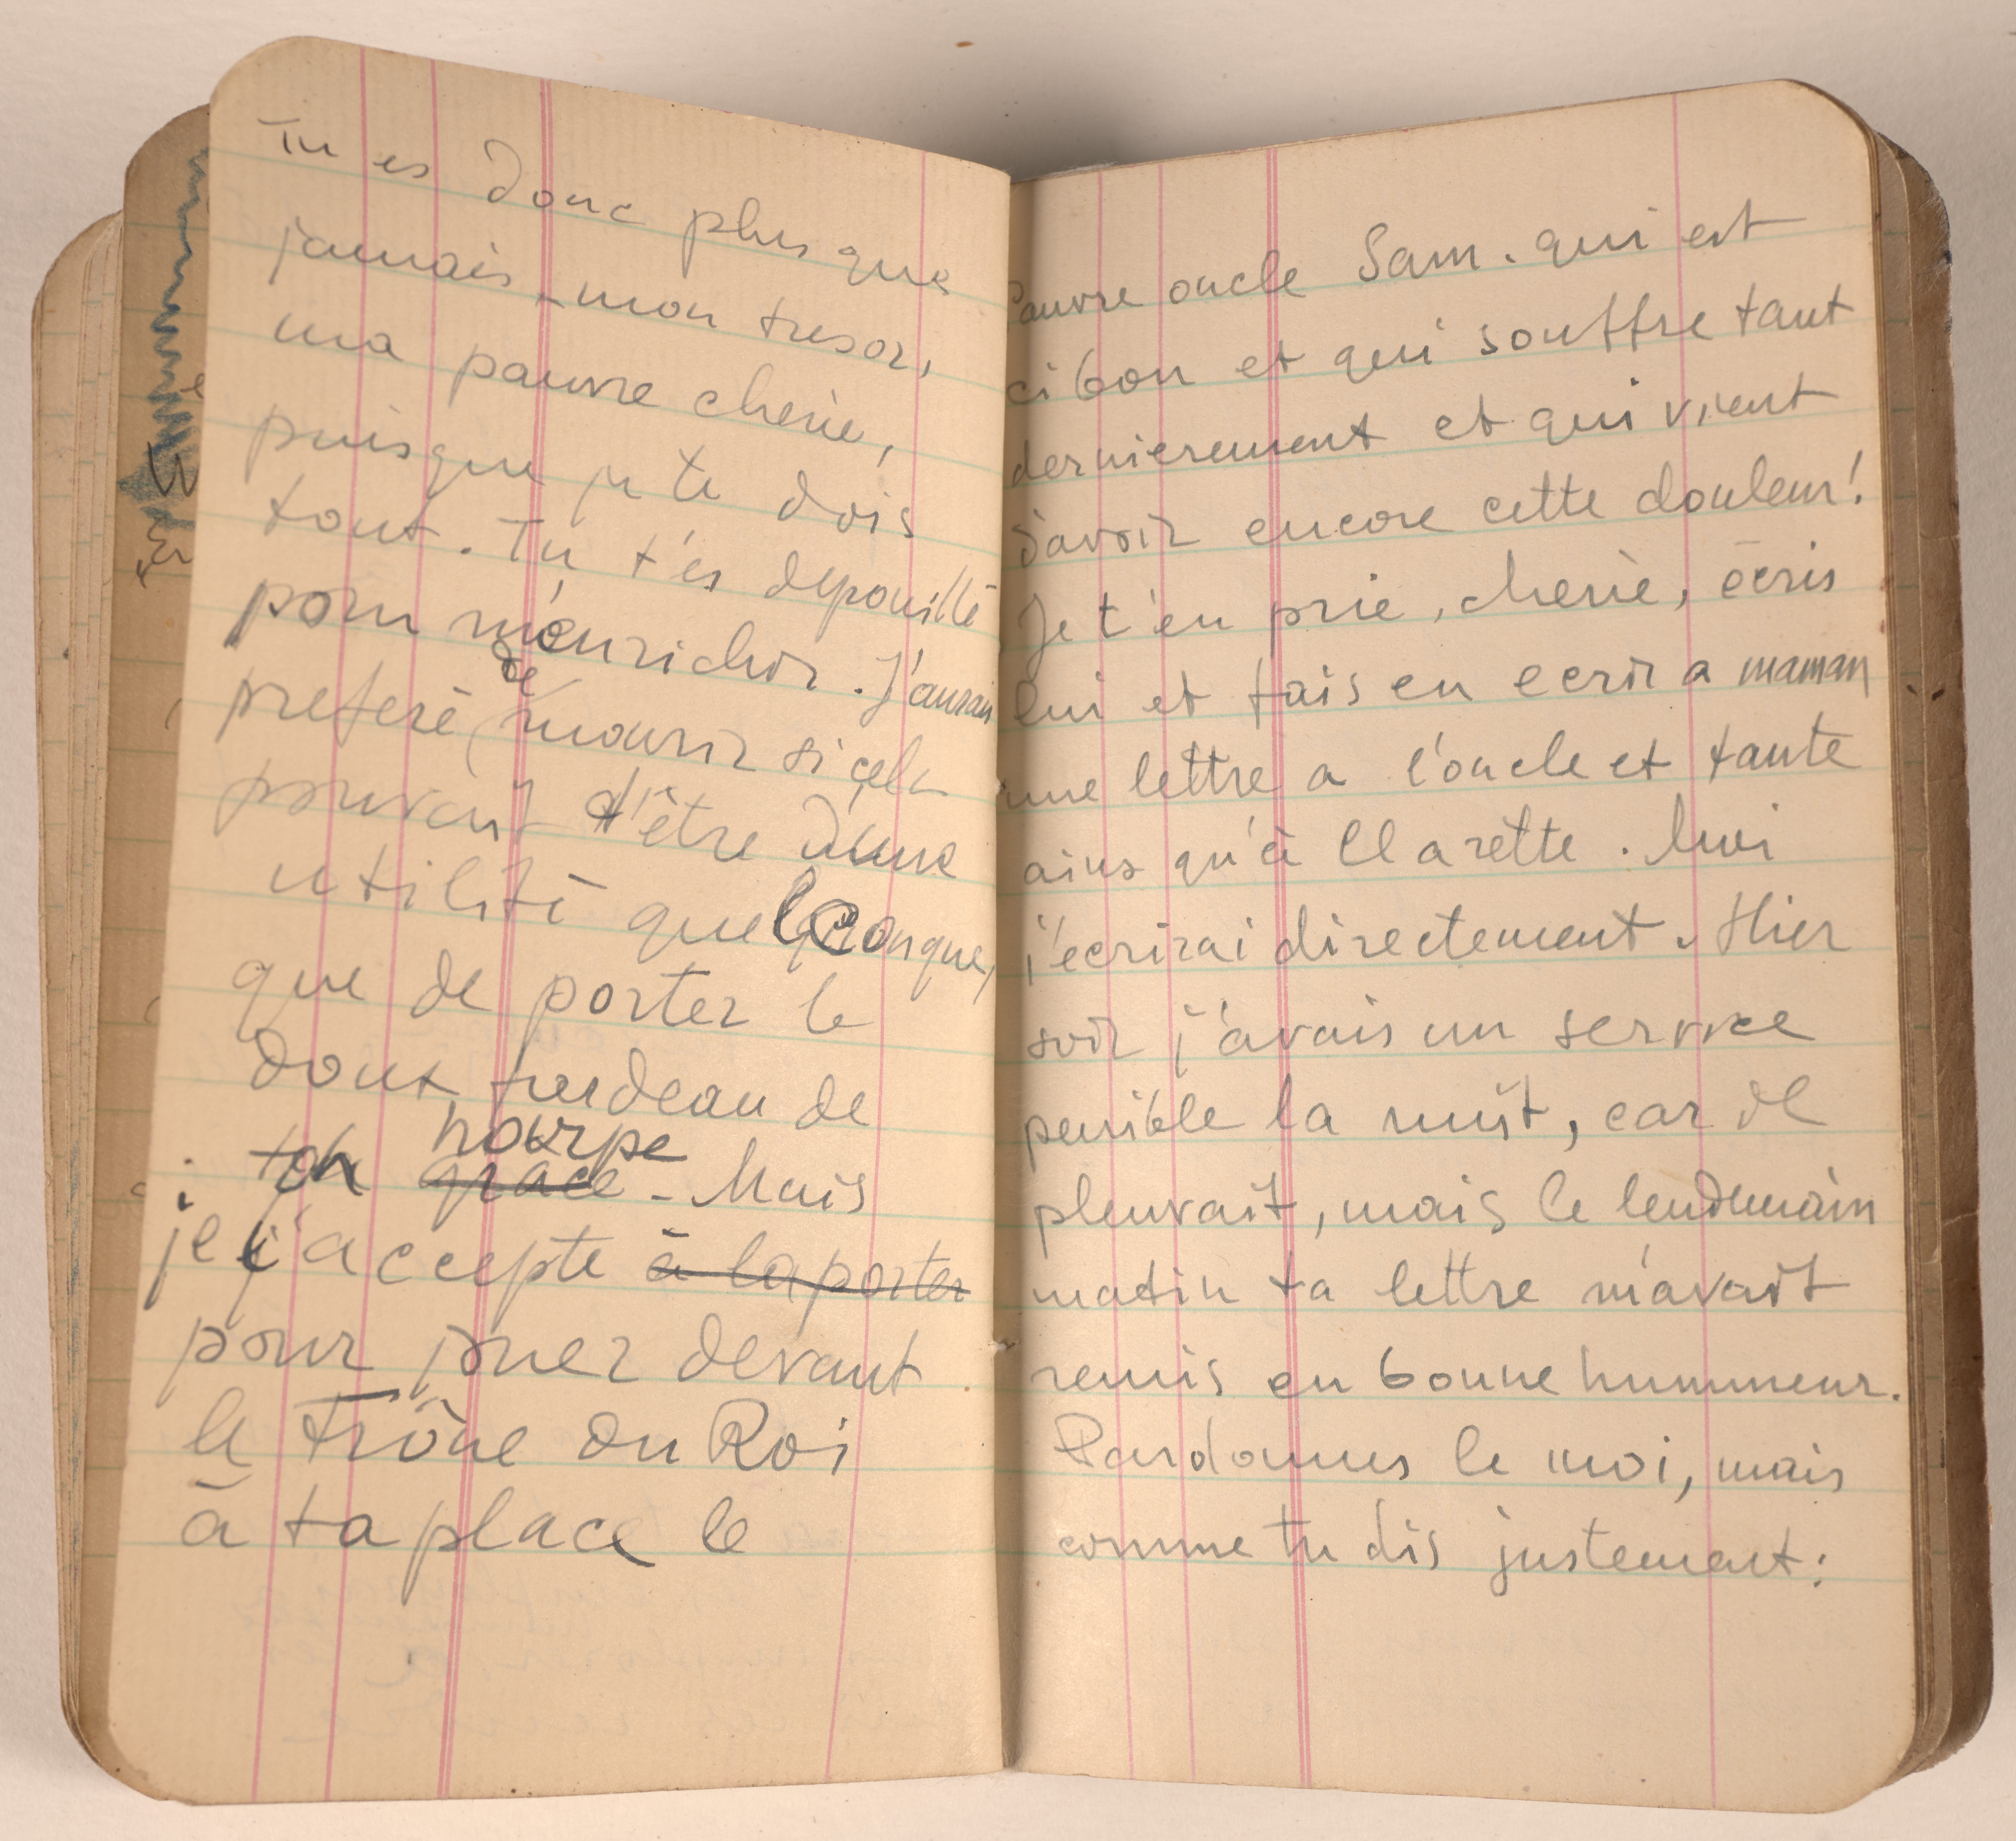 Tu es donc plus que
jamais - mon tresor,
ma pauvre cherie,
puisque je te dois
tout. Tu t'es depouillé
pour m'enrichir. J'aurais
preferé de mourir si cela
pouvait t'être d'une
utilité quelconque,
que de porter le
doux fardeau de
ton pourpe
grace - Mais
je j'accepte à la porter
pour jouer devant
le Trône du Roi
à ta place le
Pauvre oncle Sam. qui est
ci bon et qui souffre tant
dernierement et qui vient
d'avoir encore cette douleur!
Je t'en prie, cherie, écris
lui et fais en ecrir a maman
une lettre a l'oncle et tante
ains qu'à Clarette. Moi
j'ecrirai directement. Hier
soir j'avais un service
penible la nuit, car il
pleuvait, mais le lendemain
matin ta lettre m'avait
remis en bonne hummeur.
Pardonnes le moi, mais
comme tu dis justement: